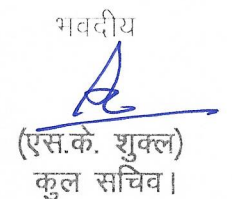 भवदीय
(एस.के. शुक्ल)
कुल सचिव।